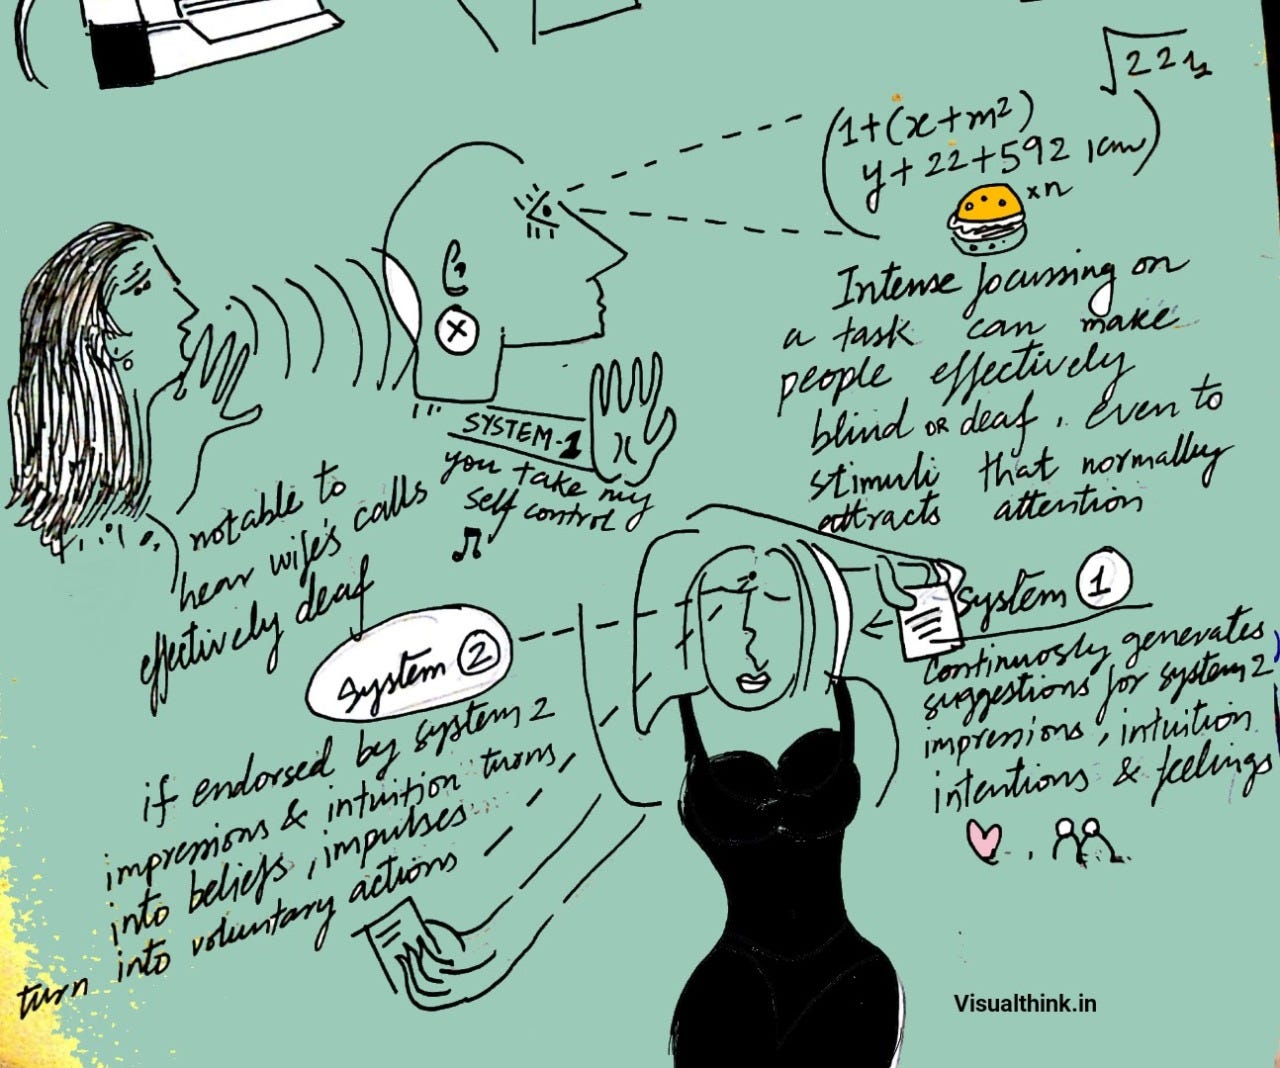 √22½
(1+(x+m²)
y+22+592 1cm)
xn
Intense focussing on
a task can make
people effectively
blind OR deaf, even to
stimuli that normalley
attracts attention
x
SYSTEM-1
x
you take my
self control
notable to
hear wife's calls
effectively deaf
system 2
if endorsed by system 2
impressions & intuition turns,
into beliefs, impulses
turn into voluntary actions
system 1
Continuosly generates
suggestions for system 2
impressions, intuition
intentions & feelings
Visualthink.in